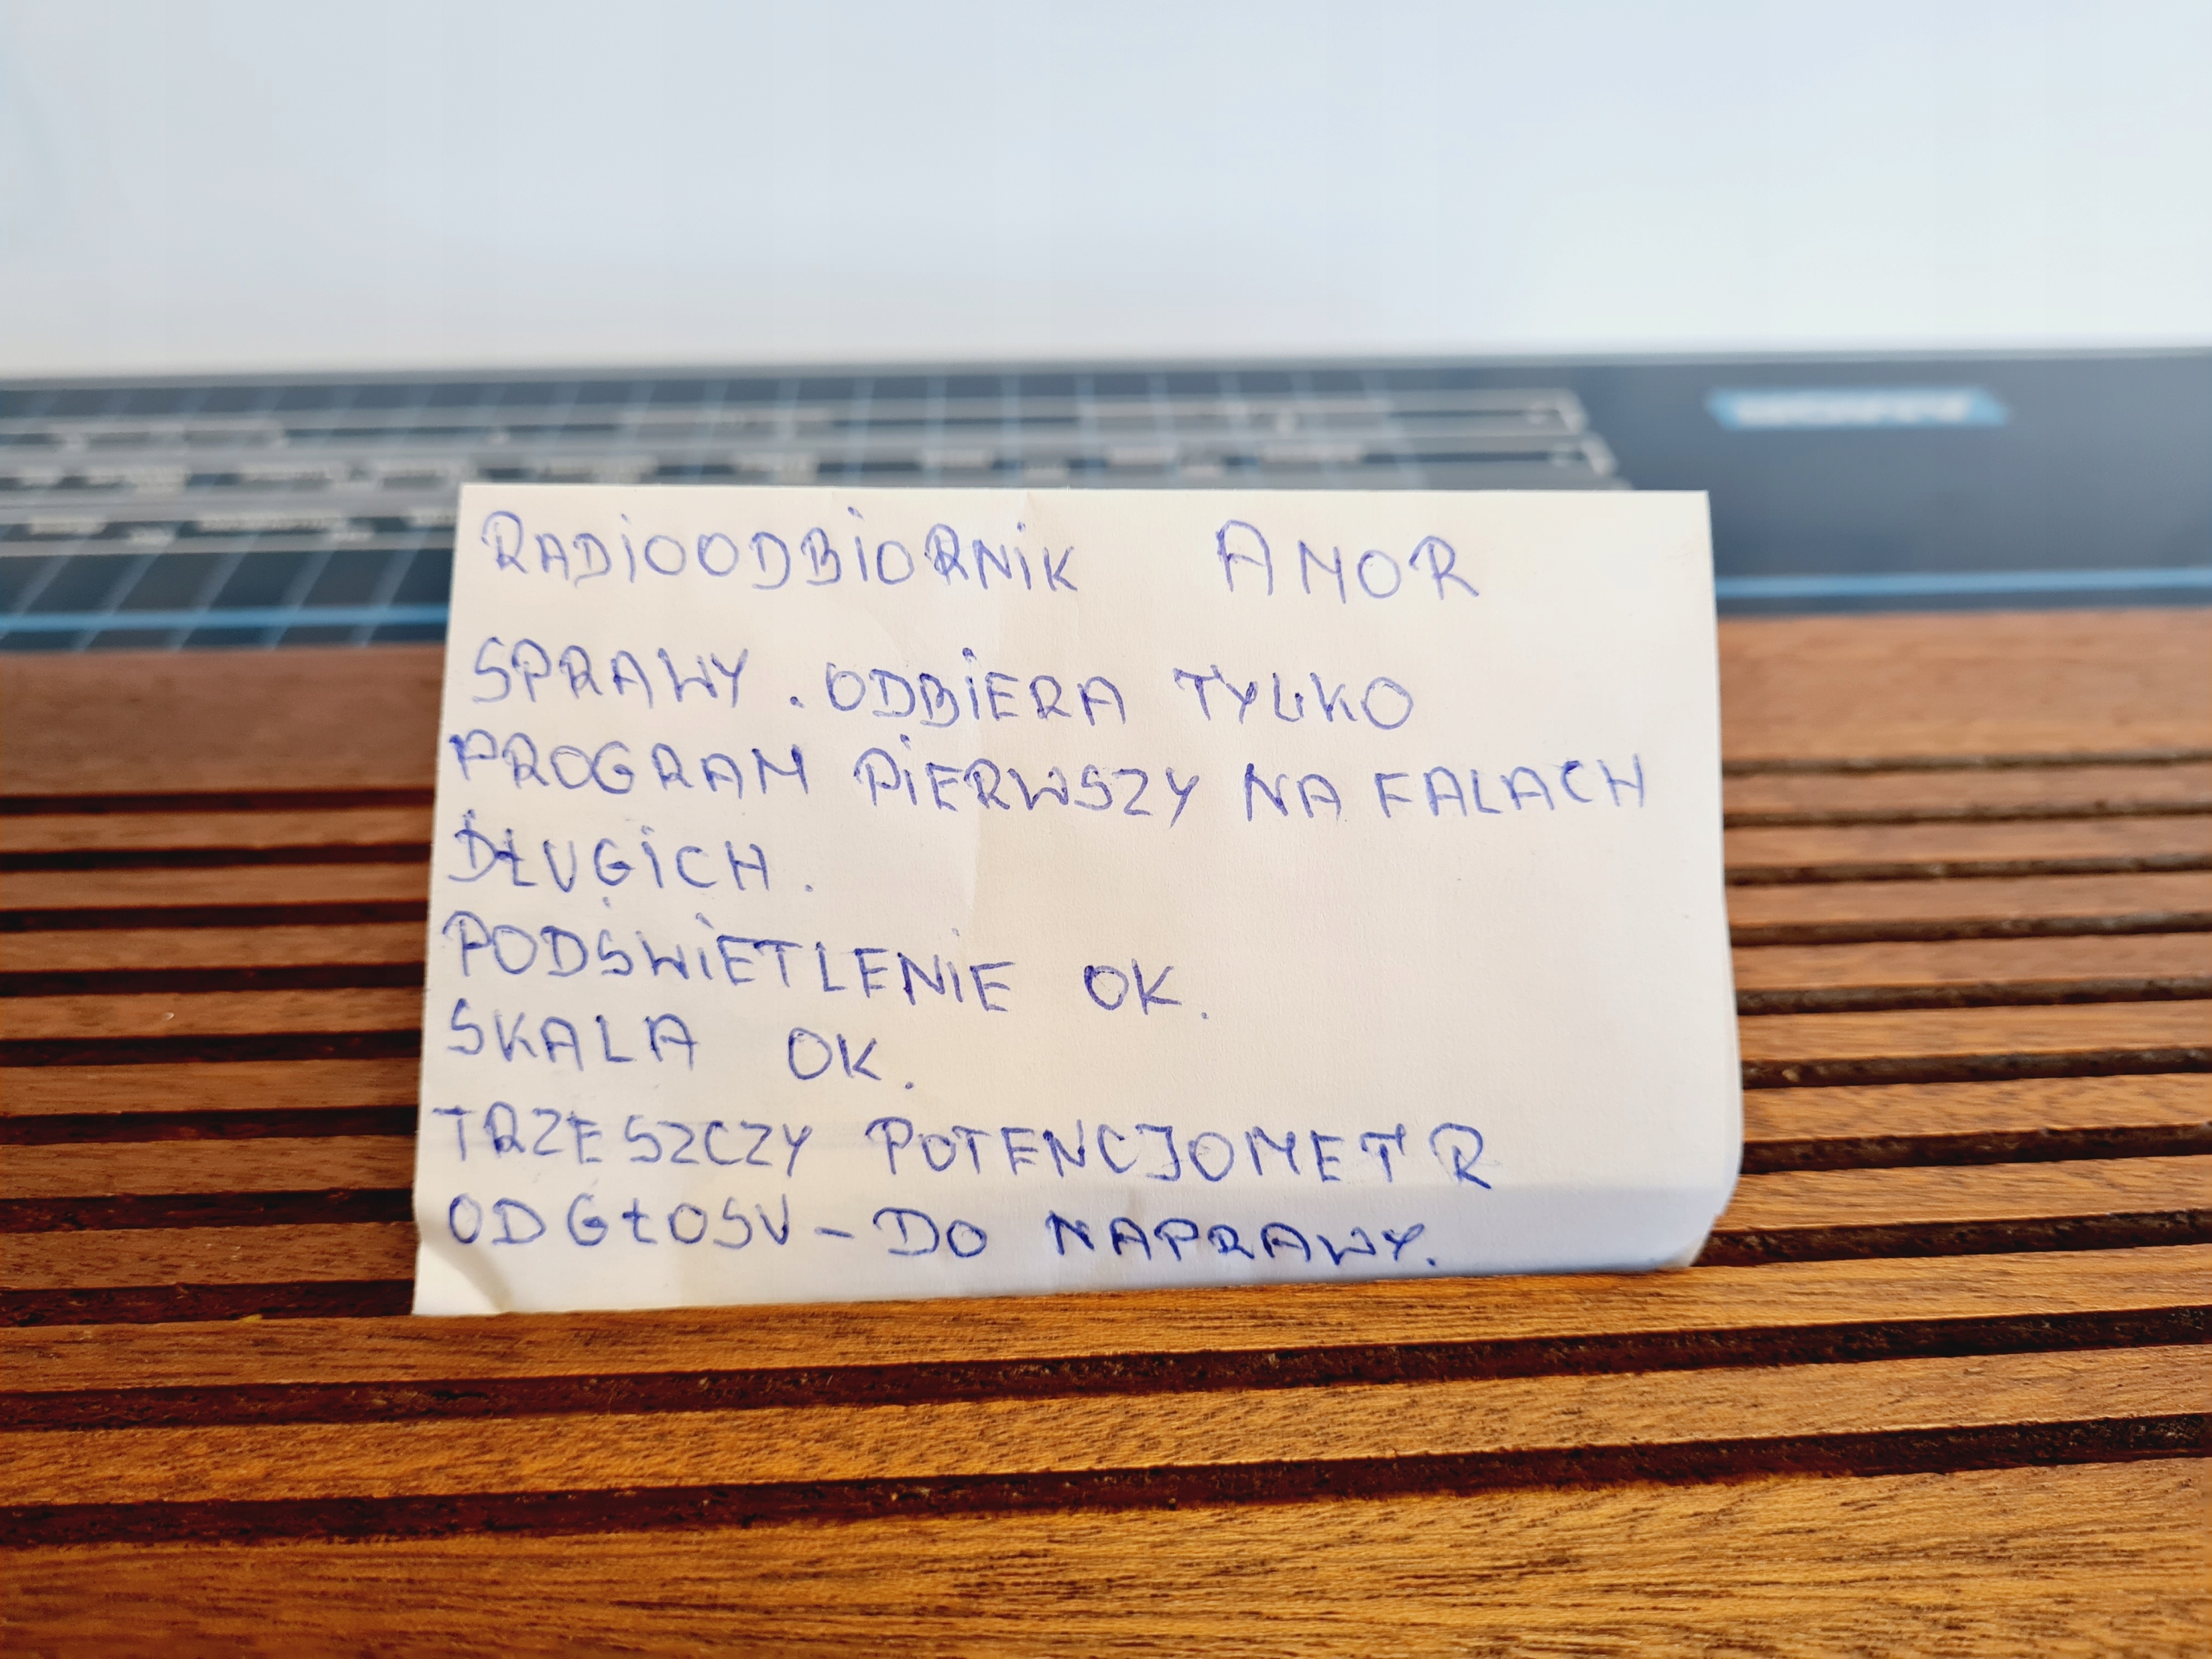 RADIOODBIORNIK AMOR
SPRAWY. ODBIERA TYLKO
PROGRAM PIERWSZY NA FALACH
DŁUGICH.
PODŚWIETLENIE OK.
SKALA OK.
TRZESZCZY POTENCJOMETR
OD GŁOSU - DO NAPRAWY.